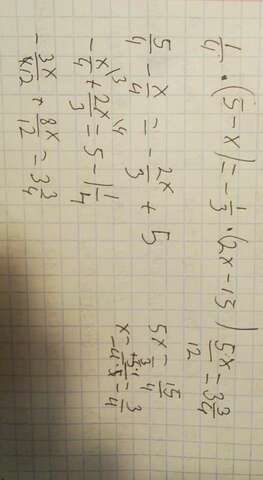 1/4 · (5 - x) = - 1/3 · (2x - 15)
5/4 - x/4 = - 2x/3 + 5
- x/4 \3 + 2x/3 \4 = 5 - 1 1/4
- 3x/12 + 8x/12 = 3 3/4
5x/12 = 3 3/4
5x/3 = 15/4